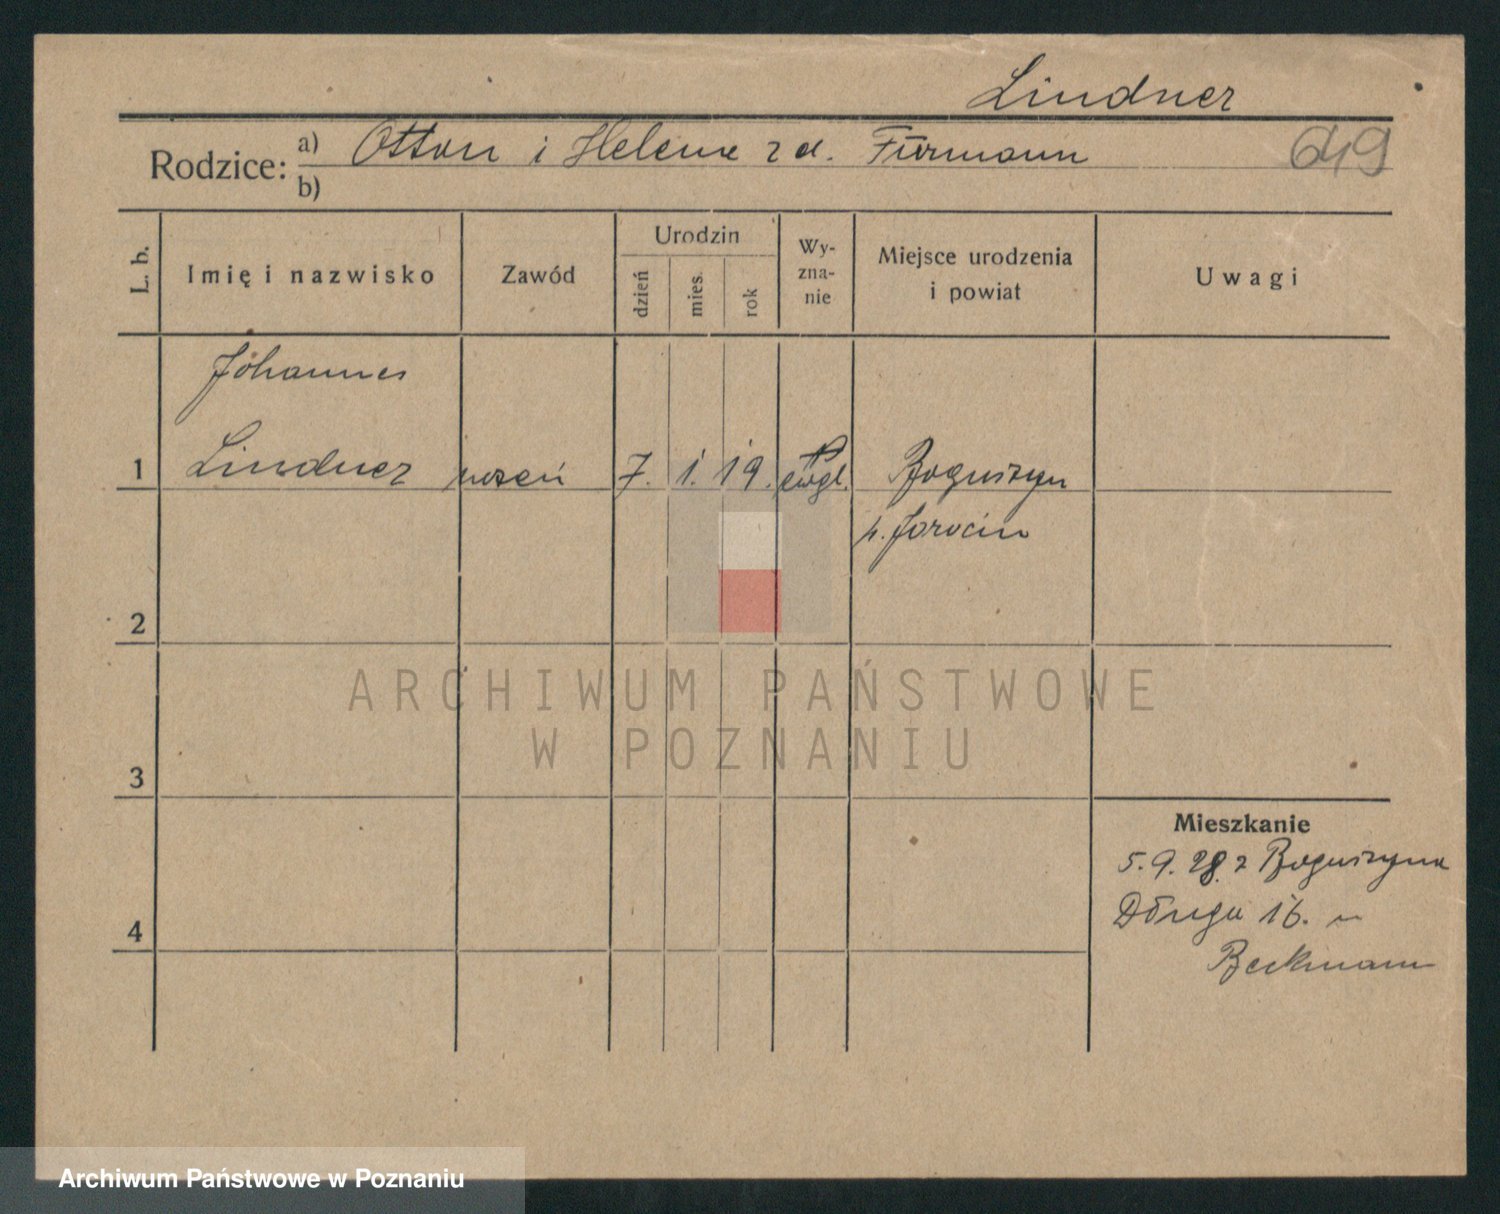 Lindner
Rodzice: a) Otton i Helene z d. Fūrmann 649
b)
L. b. Imię i nazwisko Zawód Urodzin dzień mies. rok Wy-zna-nie Miejsce urodzenia i powiat Uwagi
Johannes
1 Lindner uczeń 7. 1. 19. ewgl. Boguszyn
p. Jarocin
2
ARCHIWUM PAŃSTWOWE
W POZNANIU
3
Mieszkanie
5. 9. 28. z Boguszyna
4 Długa 16.
Beckmann
Archiwum Państwowe w Poznaniu